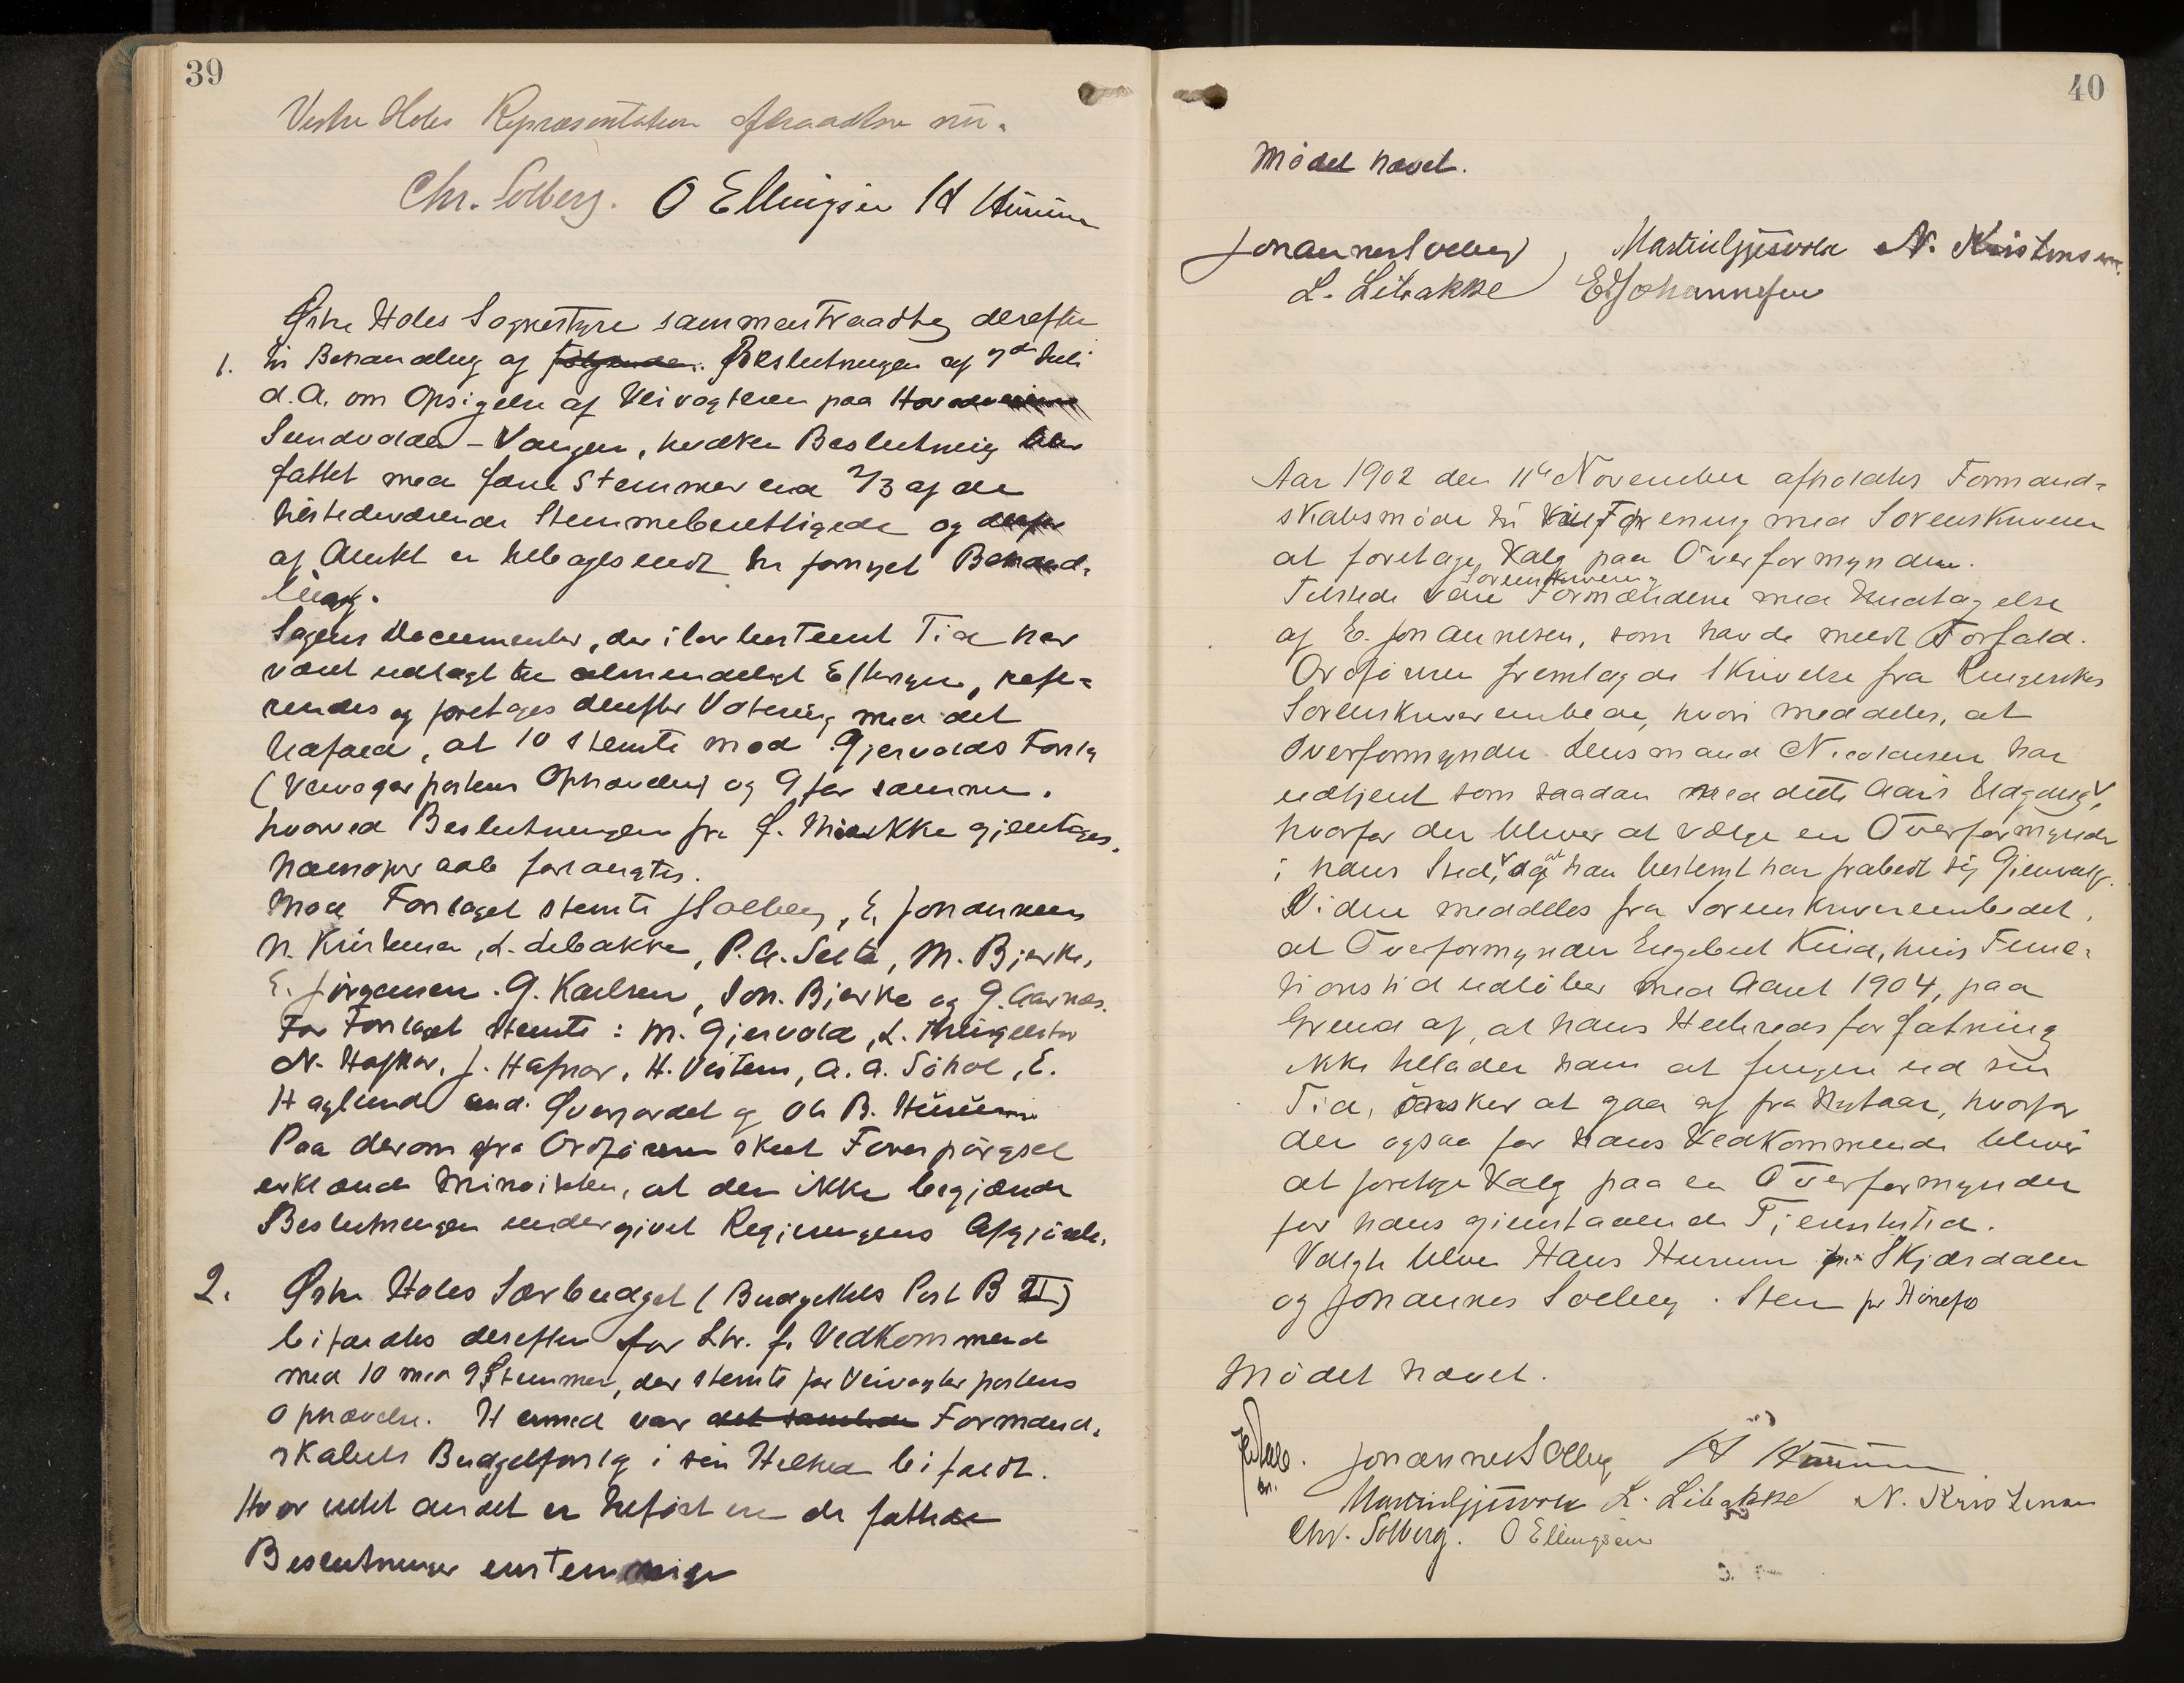 39
Vestre Holes Repræsentation fratraadte nu.
Chr. Solberg. O Ellingsen H Hurum
Østre Holes Sognestyre sammentraadte derefter
1. til Behandling af følgende: Beslutningen af 7de Juli
d. A. om Opsigelse af Veivogteren paa
Sundvolden - Vangen, hvilken Beslutning blev
fattet med færre Stemmer end 2/3 af de
tilstedeværende Stemmeberettigede og
af Amtet er tilbagesendt til fornyet Behand-
ling.
Sagens Documenter, der i lovbestemt Tid har
været udlagt til almindeligt Eftersyn, refe-
reredes og foretages derefter Votering med det
Udfald, at 10 stemte mod Gjervolds Forslag
(Veivogterpostens Ophævelse) og 9 for samme,
hvorved Beslutningen fra f. M. ikke gjentages.
Navneopraab forlangtes.
Mod Forslaget stemte J Solberg, E. Johannesen
N. Kristensen, L. Libakke, P. A. Selte, M. Bjerke,
E. Jørgensen. G. Karlsen, Joh. Bjerke og G. Aarnæs.
For Forslaget stemte: M. Gjesvold, L.
N. Hafnor, J. Hafnor, H. Vestern, A. A. Søhol, E.
Haglund and. Øverjordet og Ole B. Hurum
Paa derom fra Ordføreren skeet Forespørgsel
erklærede Minoriteten, at den ikke begjærede
Beslutningen undergivet Regjeringens Afgjørelse.
2. Østre Holes Særbudget (Budgettets Post B II)
bifaldtes derefter for Litr. f. Vedkommende
med 10 mod 9 Stemmer, der stemte for Veivogterpostens
Ophævelse. Hermed var det samlede Formand-
skabets Budgetforslag i sin Helhed bifaldt.
Hvor intet andet er tilført ere de fattede
Beslutninger enstemmige
40
Mödet hævet.
Johannes Solberg, Martin Gjesvold N. Kristensen.
L. Libakke E. Johannesen
Aar 1902 den 11te November afholdtes Formand-
skabsmöde til i Forening med Sorenskriveren
at foretage Valg paa Overformyndere.
Sorenskriveren og
Tilstede vare Formændene med Undtagelse
af E. Johannesen, som havde meldt Forfald.
Ordföreren fremlagde Skrivelse fra Ringerikes
Sorenskriverembede, hvori meddeles, at
Overformynder Lensmand Nicolaisen har
udtjent som saadan med dette Aars Udgang,
hvorfor der bliver at vælge en Overformynder
i hans Sted, og at han bestemt har frabedt sig Gjenvalg.
Videre meddeles fra Sorenskriverembedet,
at Overformynder Engebret Rud, hvis Func-
tionstid udlöber med Aaret 1904, paa
Grund af, at hans Helbredsforfatning
ikke tillader ham at fungere ud sin
Tid, önsker at gaa af fra Nytaar, hvorfor
der ogsaa for hans Vedkommende bliver
at foretage Valg paa en Overformynder
for hans gjenstaaende Tjenestetid.
Valgte blev Hans Hurum fra Skjærdalen
og Johannes Solberg. Sten pr Hönefos
Mödet hævet.
Johannes Solberg H Hurum
Martin Gjesvold L. Libakke N. Kristensen
Chr. Solberg. O Ellingsen